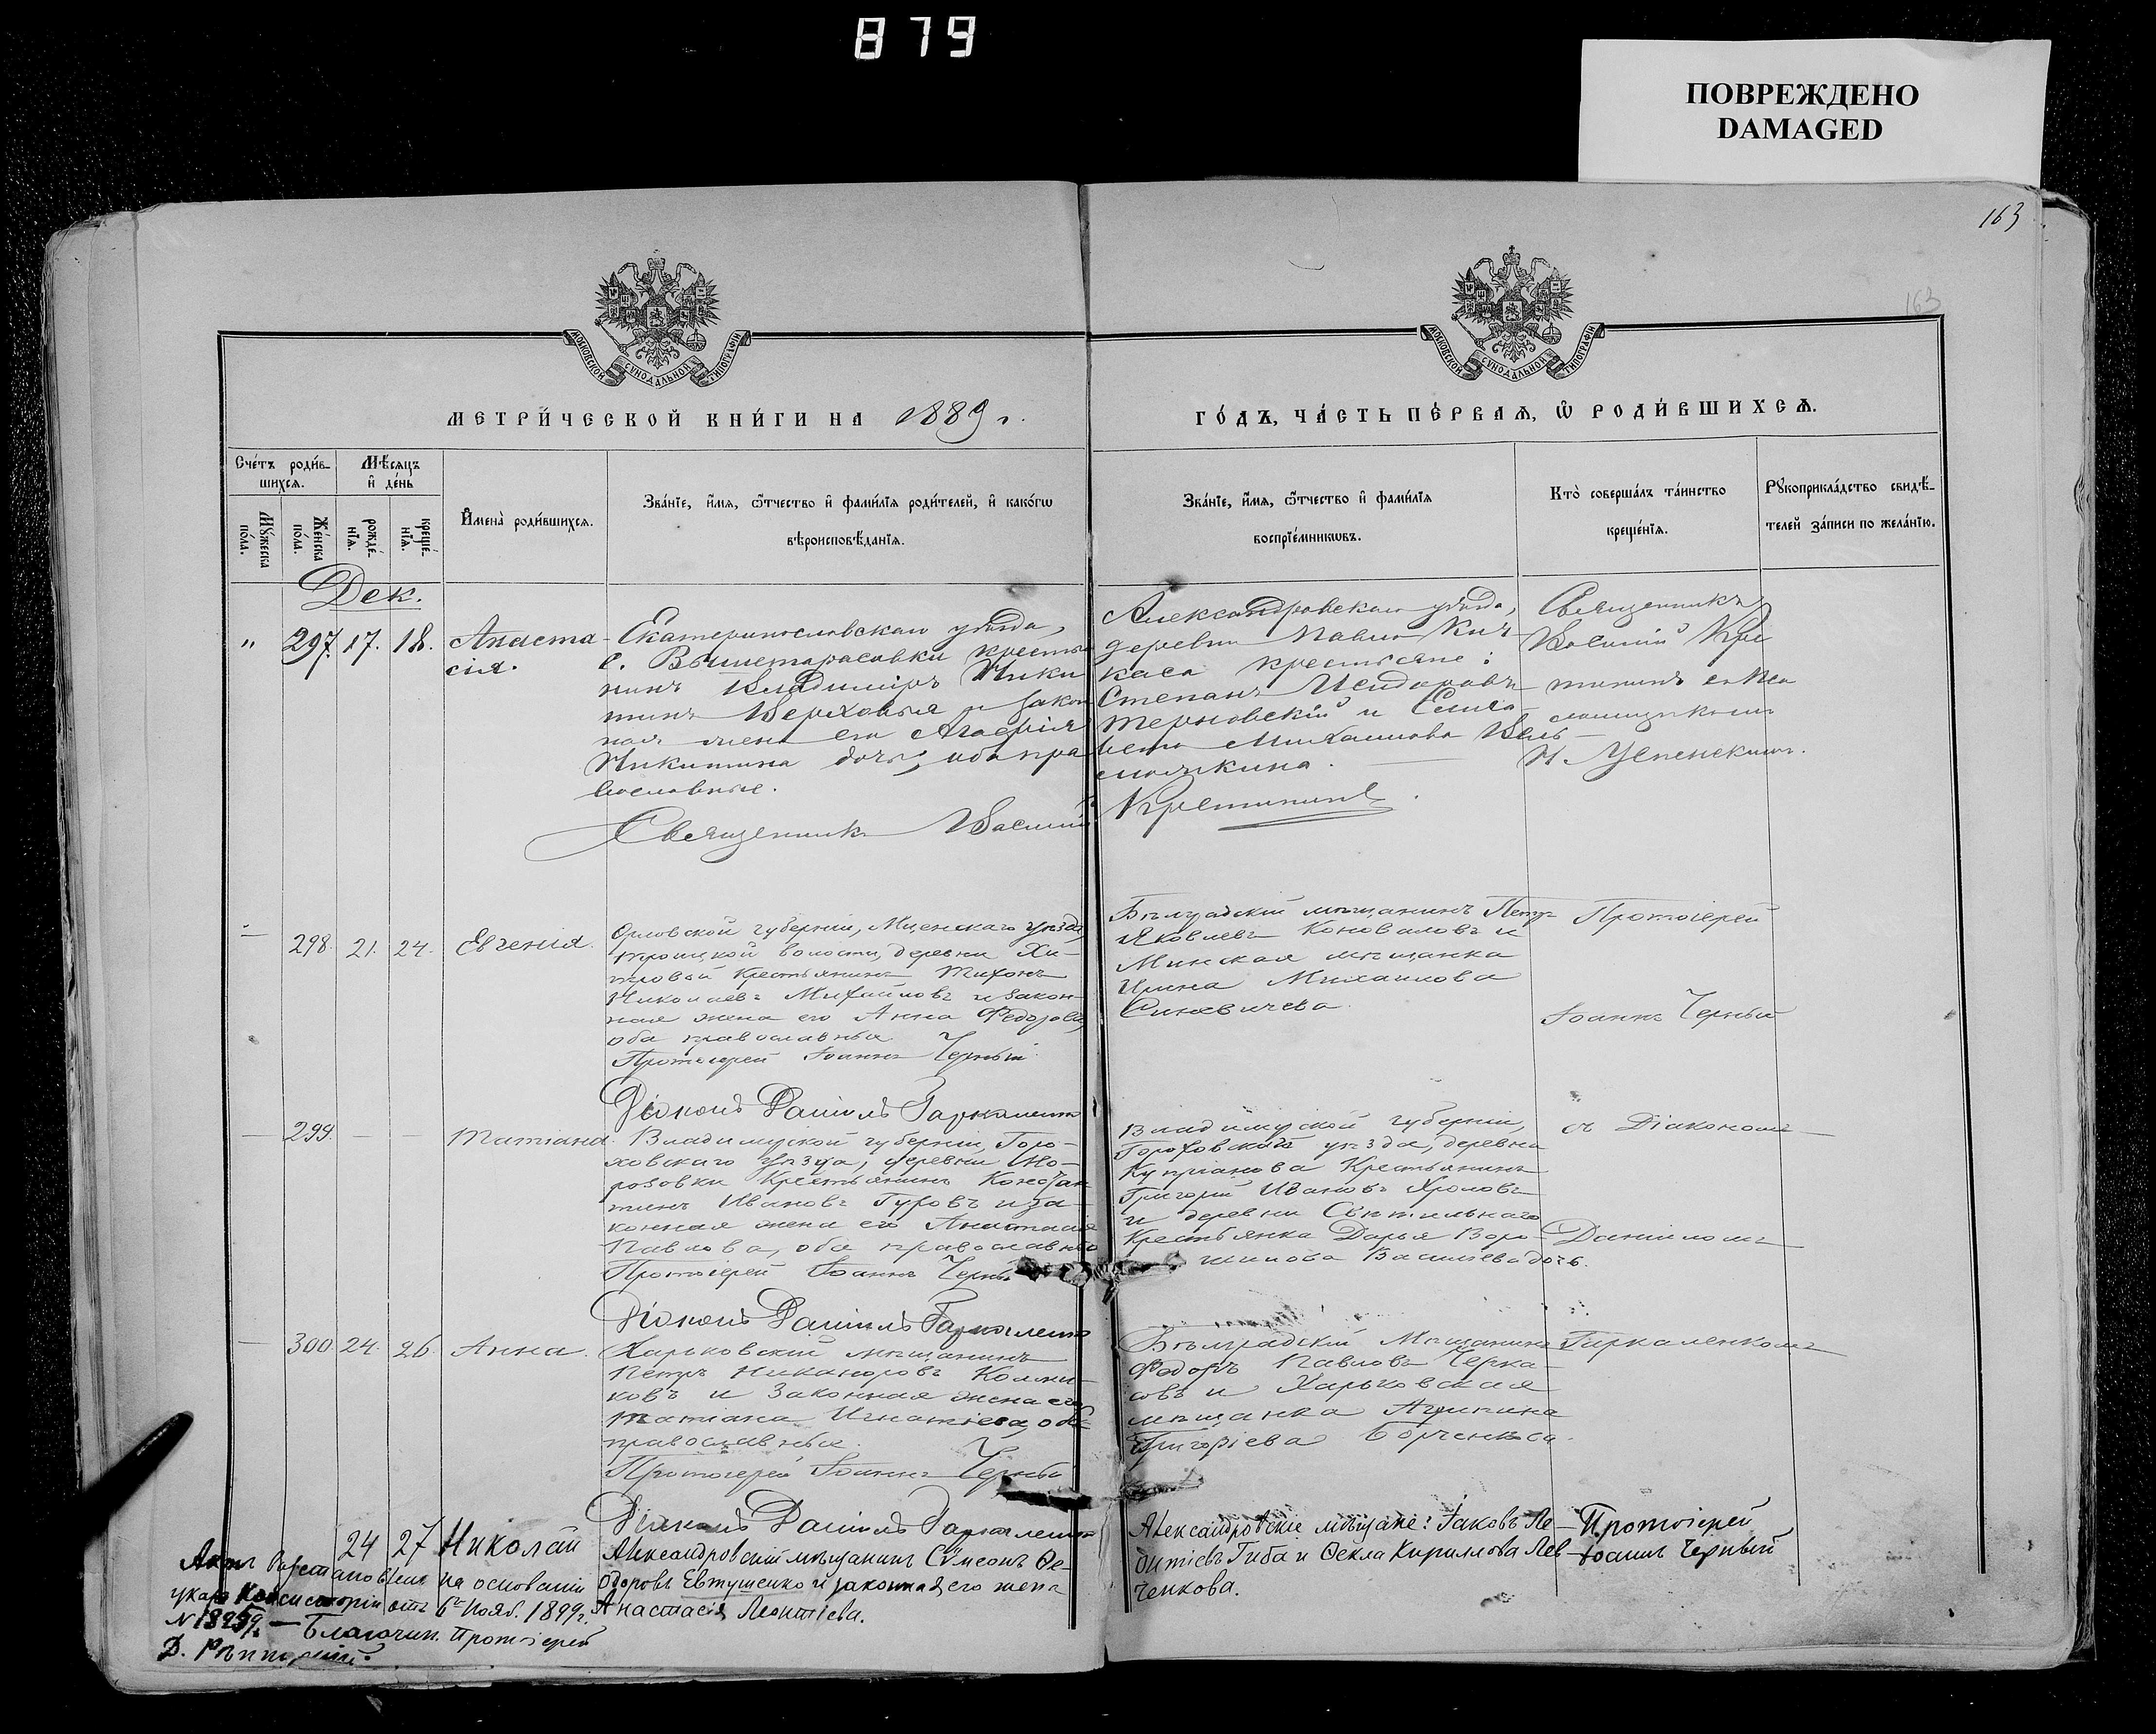 879
ПОВРЕЖДЕНО
DAMAGED
163
163
МОСКОВСКОЙ СУНОДАЛЬНОЙ ТИПОГРАФІИ
МОСКОВСКОЙ СУНОДАЛЬНОЙ ТИПОГРАФІИ
МЕТРИ́ЧЕСКОЙ КНИ́ГИ НА 1889 г.
ГО́ДЪ, ЧА́СТЬ ПЕ́РВАЯ, Ѡ РОДИ́ВШИХСЯ.
Сче́тъ роди́в-
шихся.
Мꙋ́жеска
по́ла.
Же́нска
по́ла.
Мѣ́сяцъ
и҆ де́нь
рожде́-
нїя.
креще́-
нїя.
И҆мена̀ роди́вшихся.
Зва́нїе, и҆́мя, ѻ҆́тчество и҆ фами́лїя роди́телей, и҆ како́гѡ
вѣроисповѣ́данїя.
Зва́нїе, и҆́мя, ѻ҆́тчество и҆ фами́лїя
воспрїе́мникѡвъ.
Кто̀ соверша́лъ та́инство
креще́нїя.
Рꙋкоприкла́дство свидѣ́-
телей за́писи по жела́нїю.
Дек.
" 297. 17. 18. Анаста-
сія.
Екатеринославскаго уѣзда,
с. Вышетарасовки крестья
нинъ Владиміръ Ники
тинъ Верховыя и закон
ная жена его Агафія
Никитина дочь; оба пра
вославные.
Священникъ Василій Кретининъ.
Александровскаго уѣзда,
деревни Павло-Кич-
каса крестьяне:
Степанъ Исидоровъ
Терновскій и Елиса-
вета Михаилова Вель-
можкина.
Священникъ
Василій Кре
тининъ съ Пса
ломщикомъ
Н. Успенскимъ.
— 298. 21. 24. Евгенія.
Орловской губерніи, Мценскаго уѣзда,
троицкой волости, деревни Хи-
тровой Крестьянинъ Тихонъ
Николаевъ Михайловъ и закон-
ная жена его Анна Федорова,
оба православныя
Протоіерей Іоаннъ Черный
Діаконъ Даніилъ Гаркаленко
Бѣлградскій мѣщанинъ Петръ
Яковлевъ Коноваловъ и
Минская мѣщанка
Ирина Михаилова
Синевичева
Протоіерей
Іоаннъ Черный
— 299. — — Татіана.
Владимірской губерніи, Горо-
ховскаго уѣзда, деревни Мо-
розовки Крестьянинъ Констан
тинъ Ивановъ Гуровъ и за-
конная жена его Анастасія
Павлова, оба православны
Протоіерей Іоаннъ Черный
Діаконъ Даніилъ Гаркаленко
Владимірской губерніи,
Гороховскаго уѣзда, деревни
Купріанова Крестьянинъ
Григорій Ивановъ Хроловъ
и деревни Свѣтильнаго
Крестьянка Дарья Воро-
шилова Василіева дочь.
съ Діакономъ
Даніиломъ
— 300. 24. 26. Анна.
Харьковскій мѣщанинъ
Петръ Никаноровъ Колми-
ковъ и законная жена его
Татіана Игнатіева, оба
православныя.
Протоіерей Іоаннъ Черный
Діаконъ Даніилъ Гаркаленко
Бѣлградскій Мѣщанинъ
Федоръ Павловъ Черка-
совъ и Харьковская
мѣщанка Агрипина
Григоріева Борченкова.
Гаркаленкомъ
24 27 Николай
Александровскій мѣщанинъ Сѵмеонъ Ѳе-
одоровъ Евтушенко и законная его жена
Анастасія Леонтіева.
Александровскіе мѣщане: Іаковъ Ле-
онтіевъ Гиба и Ѳекла Кириллова Лев-
ченкова.
Протоіерей
Іоаннъ Черный
Актъ возстановленъ на основаніи
указа Консисторіи отъ 6го Нояб. 1899 г.
— Благочин. Протоіерей
Д.